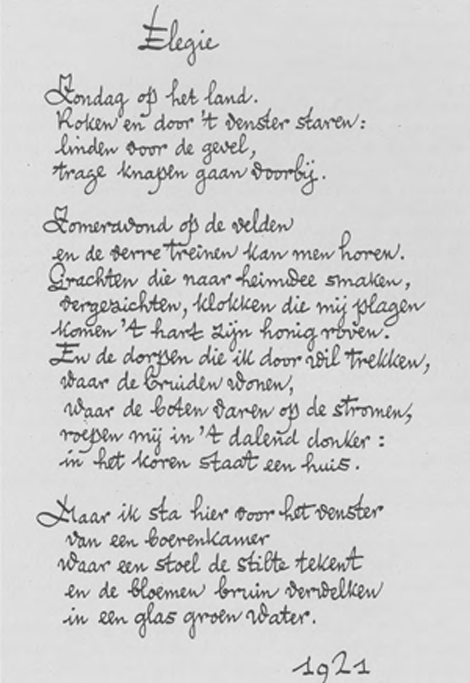 Elegie
Zondag op het land.
Roken en door 't venster staren:
linden voor de gevel,
trage knapen gaan voorbij.
Zomeravond op de velden
en de verre treinen kan men horen.
Grachten die naar heimwee smaken,
vergezichten, klokken die mij plagen
komen 't hart zijn honig roven.
En de dorpen die ik door wil trekken,
waar de bruiden wonen,
waar de boten varen op de stromen,
roepen mij in 't dalend donker:
in het koren staat een huis.
Maar ik sta hier voor het venster
van een boerenkamer
waar een stoel de stilte tekent
en de bloemen bruin verwelken
in een glas groen water.
1921